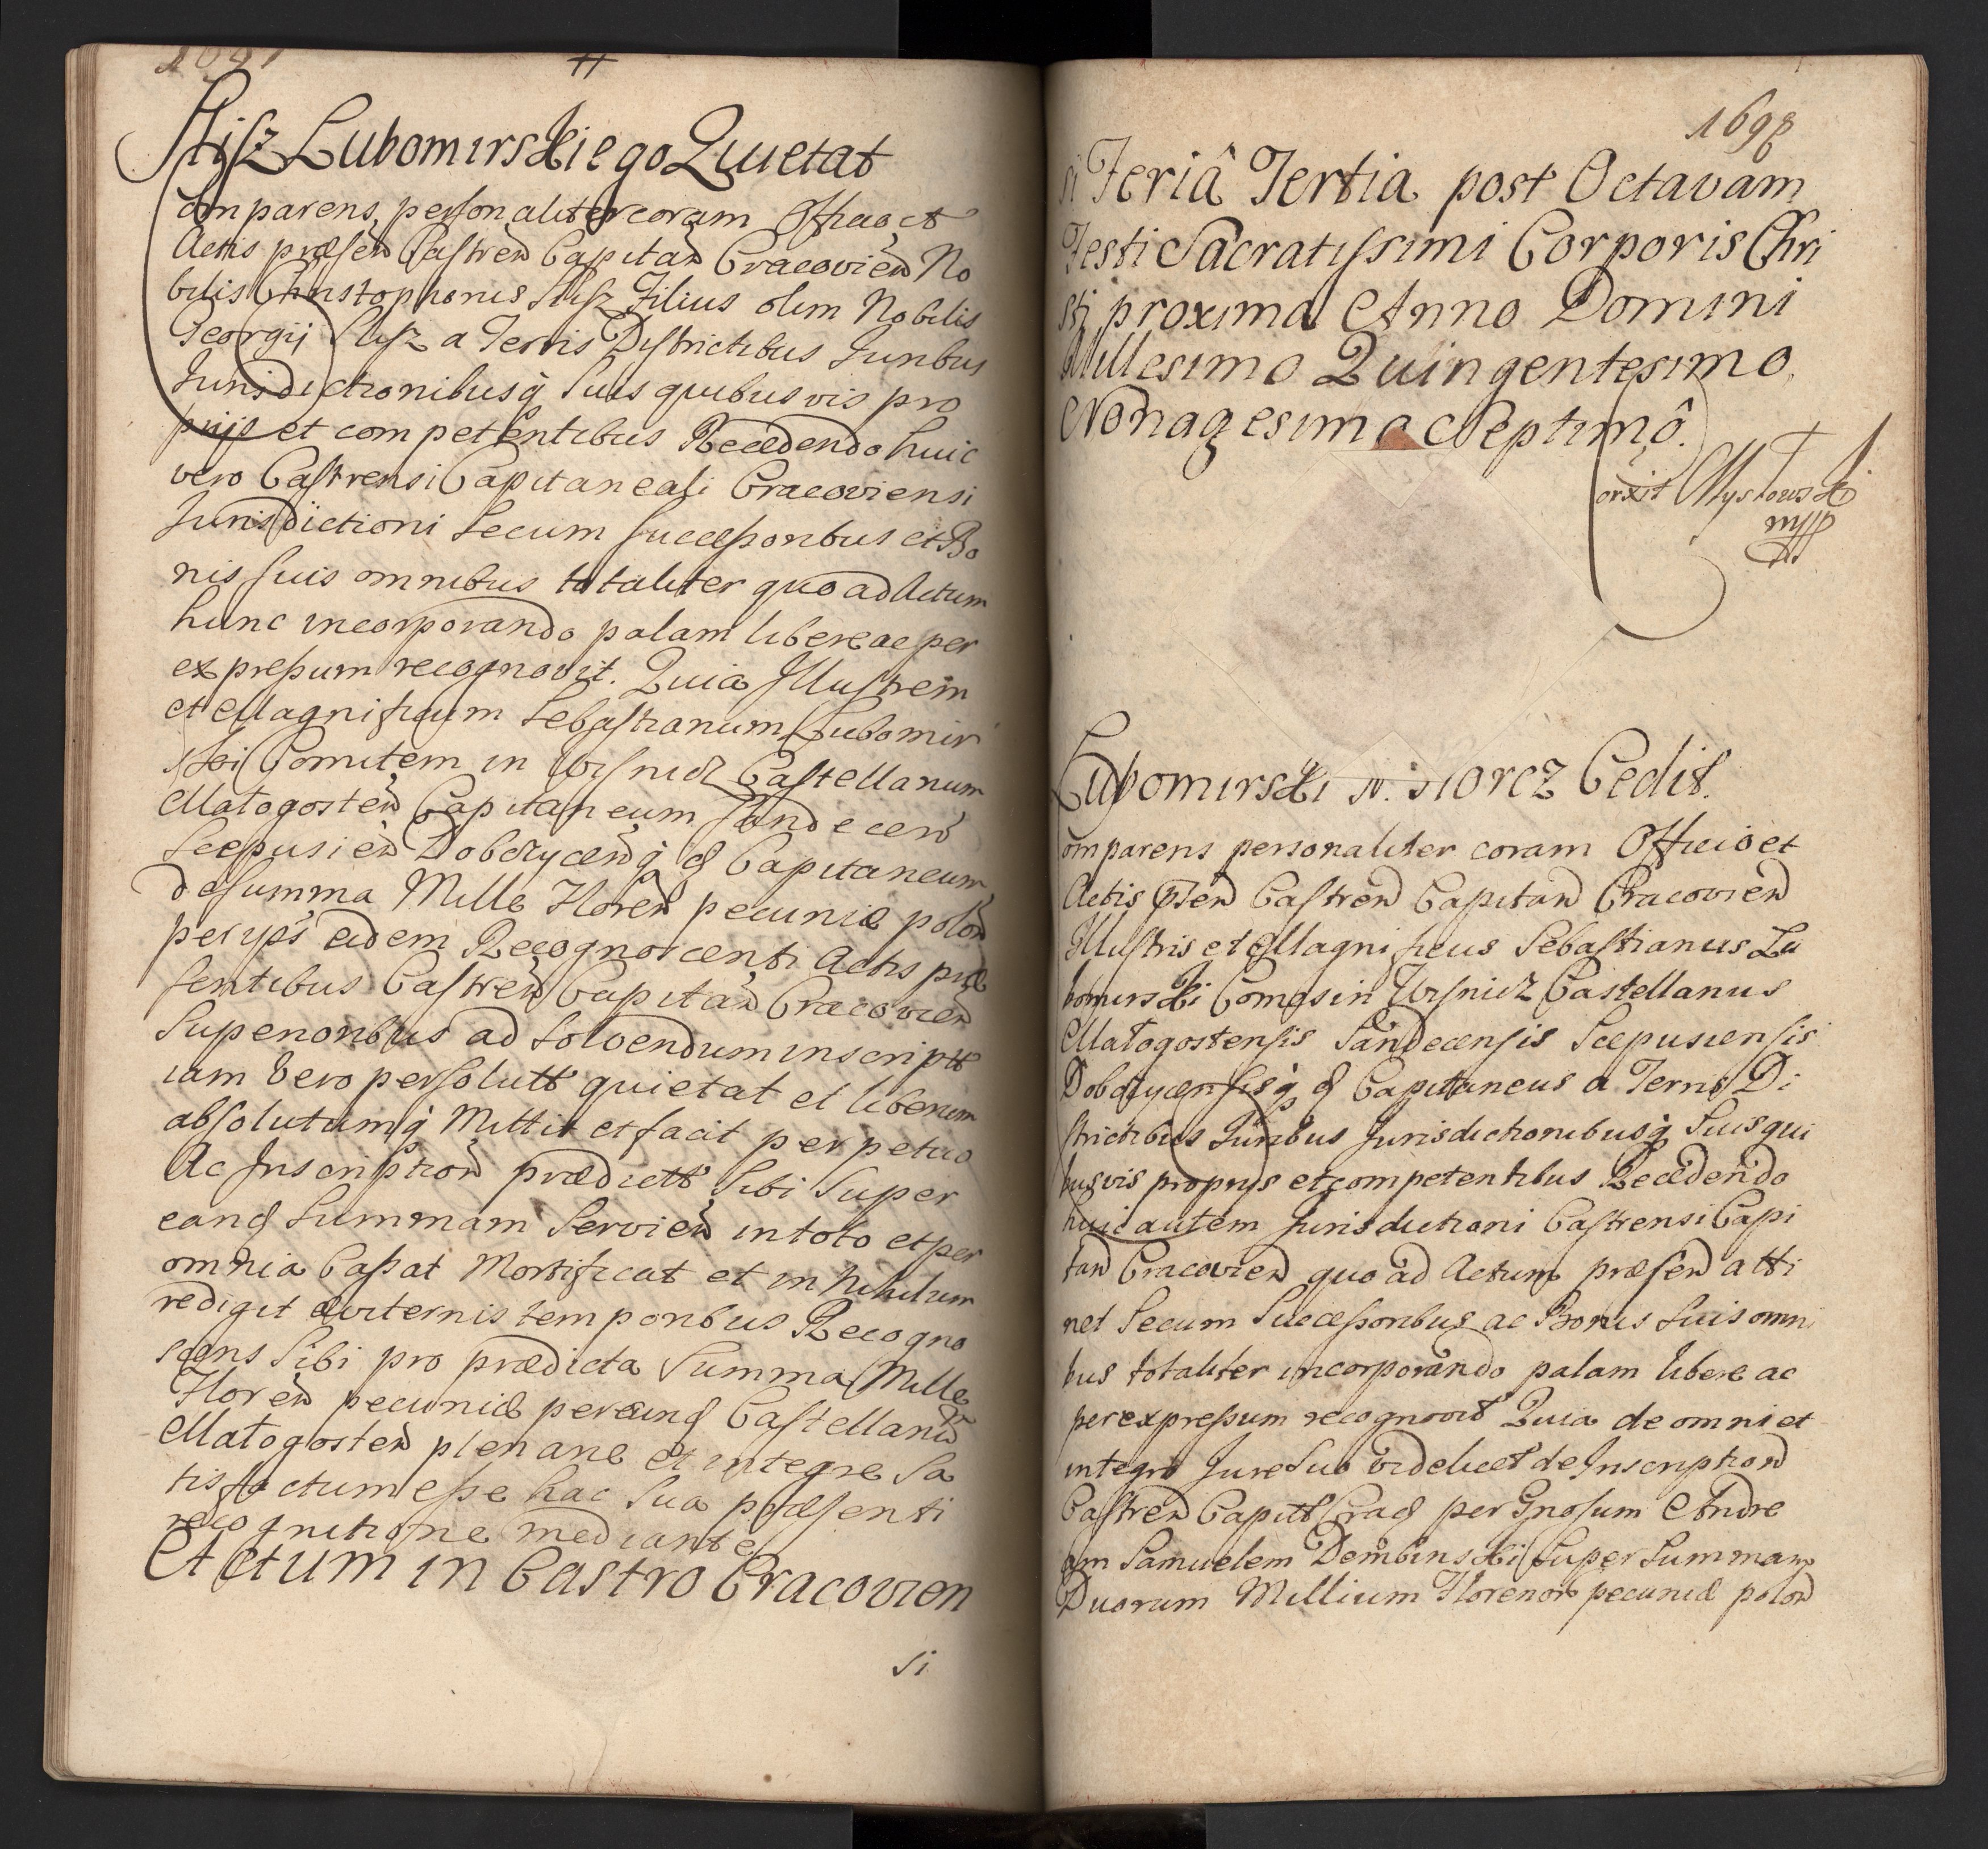 1697
Slisz Lubomirskiego Quietat
Comparens personaliter coram Officio et
Actis præsen Castren Capitan Cracovien No
bilis Christophorus Slisz Filius olim Nobilis
Georgij Slisz a Terris Districtibus Juribus
Jurisdictionibusq Suis quibusvis pro
prijs et competentibus Recedendo huic
vero Castrensi Capitaneali Cracoviensi
Jurisdictioni Secum successoribus et Bo
nis suis omnibus totaliter quo ad Actum
hunc incorporando palam libere ac per
expressum recognovit. Quia Illustrem
et Magnificum Sebastianum Lubomir
ski Comitem in Wisnicz Castellanum
Malogosten Capitaneum Sandecen
Scepusien Dobczycenq & Capitaneum
de summa Mille Floren pecuniæ polon
per ips eidem Recognoscenti Actis præ
sentibus Castren Capitan Cracovien
Superioribus ad solvendum inscriptt
iam vero persolutt quietat et liberum
absolutumq Mittit et facit perpetuo
Ac Inscription prædictt Sibi Super
eand Summam Servien in toto et per
omnia Cassat Mortificat et in nihilum
redigit æviternis temporibus Recogno
scens Sibi pro prædicta Summa Mille
Floren pecuniæ per eund Castellanu
Malogosten plenarie et integre Sa
tisfactum esse hac Sua præsenti
recognitione mediante
Actum in Castro Cracovien
si
1698
si Feriâ Tertia post Octavam
Festi Sacratissimi Corporis Chri
sti proxima Anno Domini
Millesimo Quingentesimo
Nonagesimo Septimô.
orxit Myslowski
mpp
Lubomirski N. Morcz Cedit.
Comparens personaliter coram Officio et
Actis pƚen Castren Capitan Cracovien
Illustris et Magnificus Sebastianus Lu
bomirski Comes in Wisnicz Castellanus
Malogostensis Sandecensis Scepusiensis
Dobczycensisq & Capitaneus a Terris Di
strictibus Juribus Jurisdictionibusq Suis qui
busvis proprijs et competentibus Recedendo
huic autem Jurisdictioni Castrensi Capi
tan Cracovien quo ad Actum præsen atti
net Secum Successoribus ac Bonis suis omni
bus totaliter incorporando palam libere ac
per expressum recognovit Quia de omni et
integro Jure Suo videlicet de Inscription
Castren Capitt Crac per Gnosum Andre
am Samuelem Dembinski Super Summam
Duorum Millium Florenor pecuniæ polon